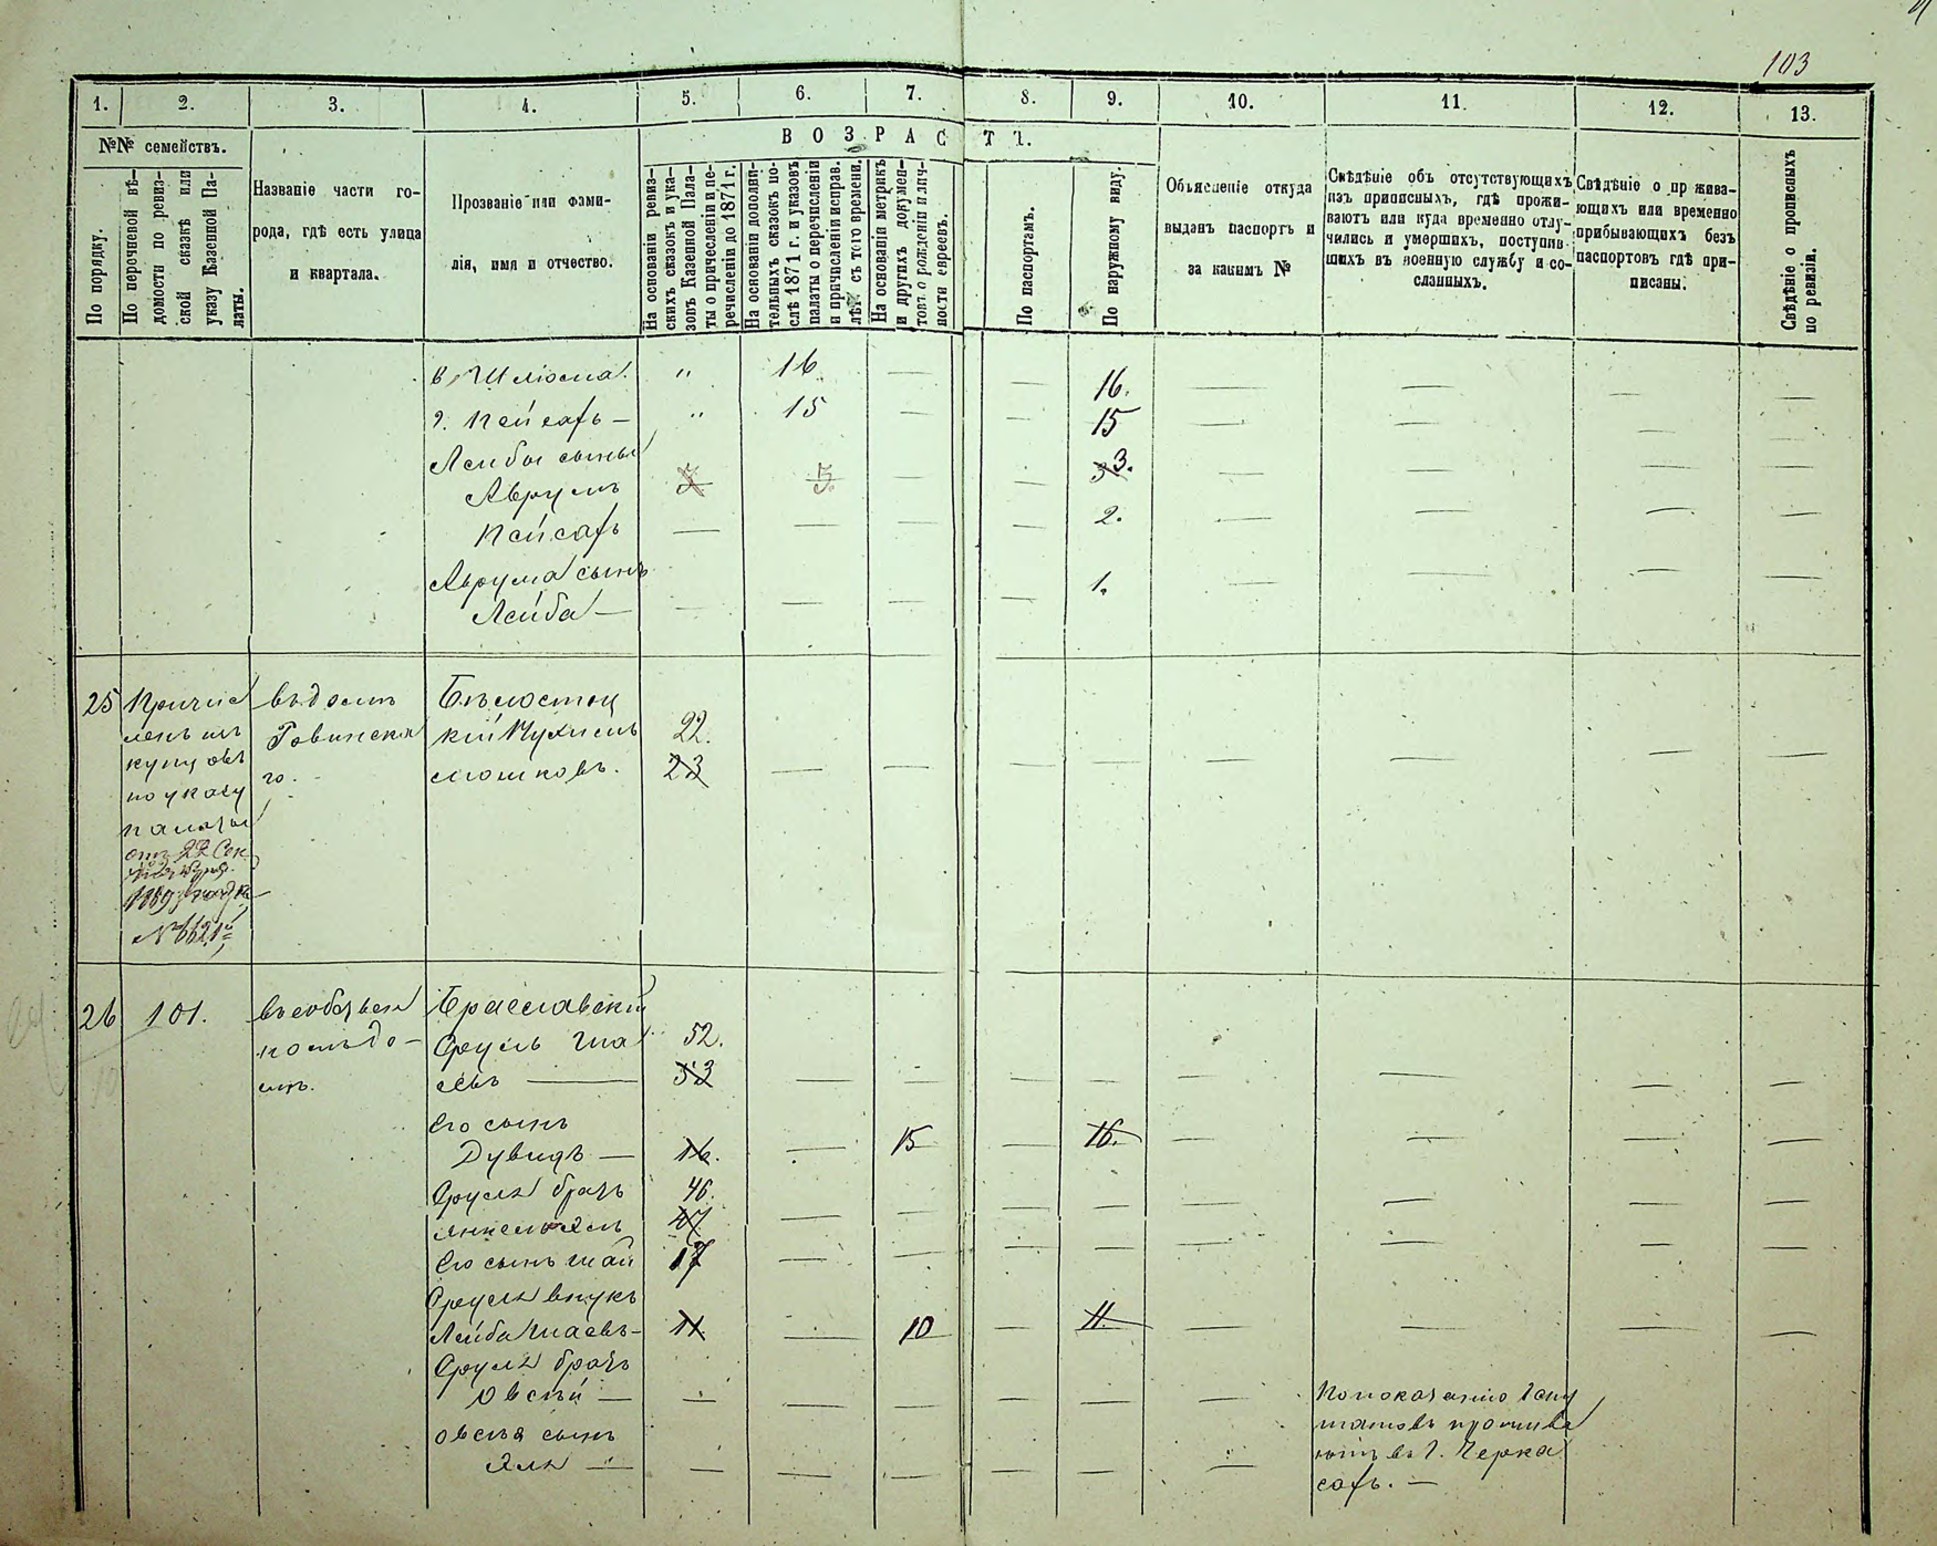 103
1. 2. 3. 4. 5. 6. 7. 8. 9. 10. 11. 12. 13.
№№ семействъ.
ВОЗРАСТЪ.
По порядку.
По перечневой вѣ-
домости по ревиз-
ской сказкѣ или
указу Казенной Па-
латы.
Названіе части го-
рода, гдѣ есть улица
и квартала.
Прозваніе или фами-
лія, имя и отчество.
На основаніи ревиз-
скихъ сказокъ и ука-
зовъ Казенной Пала-
ты о причисленіи и пе-
речисленіи до 1871 г.
На основаніи дополни-
тельныхъ сказокъ по-
слѣ 1871 г. и указовъ
палаты о перечисленіи
и причисленіи исправ.
лѣт съ того времени.
На основаніи метрикъ
и другихъ докумен-
товъ о рожденіи и лич-
ности евреевъ.
По паспортамъ.
По наружному виду.
Объясненіе откуда
выданъ паспортъ и
за какимъ №
Свѣдѣніе объ отсутствующихъ
изъ приписныхъ, гдѣ прожи-
ваютъ или куда временно отлу-
чились и умершихъ, поступив-
шихъ въ военную службу и со-
сланныхъ.
Свѣдѣніе о прожива-
ющихъ или временно
прибывающихъ безъ
паспортовъ гдѣ при-
писаны.
Свѣдѣніе о прописныхъ
по ревизіи.
в, Шлiома. " 16 — — 16. — — — —
г. Пейсахъ — " 15 — — 15 — — — —
Лейбы сыны
Аврумъ 3 3. — — 3 3. — — — —
Пейсахъ — — — — 2. — — — —
Аврума сынъ
Лейба — — — — — 1. — — — —
25 Причис въ домѣ Бѣлостоц
ленъ изъ Ровинска кій Нухимъ 22.
купцовъ го. Мошковъ. 23 — — — — — — —
по указу
палаты
отъ 22 Сен
1889 года
№ 6621
26 101. въ собствен Брасславскій
номъ до- Сруль Ша 52.
мѣ. евъ — 53 — — — — — — — —
Его сынъ
Дувидъ — 16. — 15 — 16. — — — —
Сруля братъ 46.
Янкель 47 — — — — — — — —
Его сынъ Шай 17 — — — — — — — —
Сруля внукъ
Лейба Шаевъ- 11 — 10 — 11. — — — —
Сруля братъ
Овсѣй — — — — — — — По показанію депу
татовъ прожива
Овсѣя сынъ ютъ въ г. Черка
Эля — — — — — — — сахъ. —